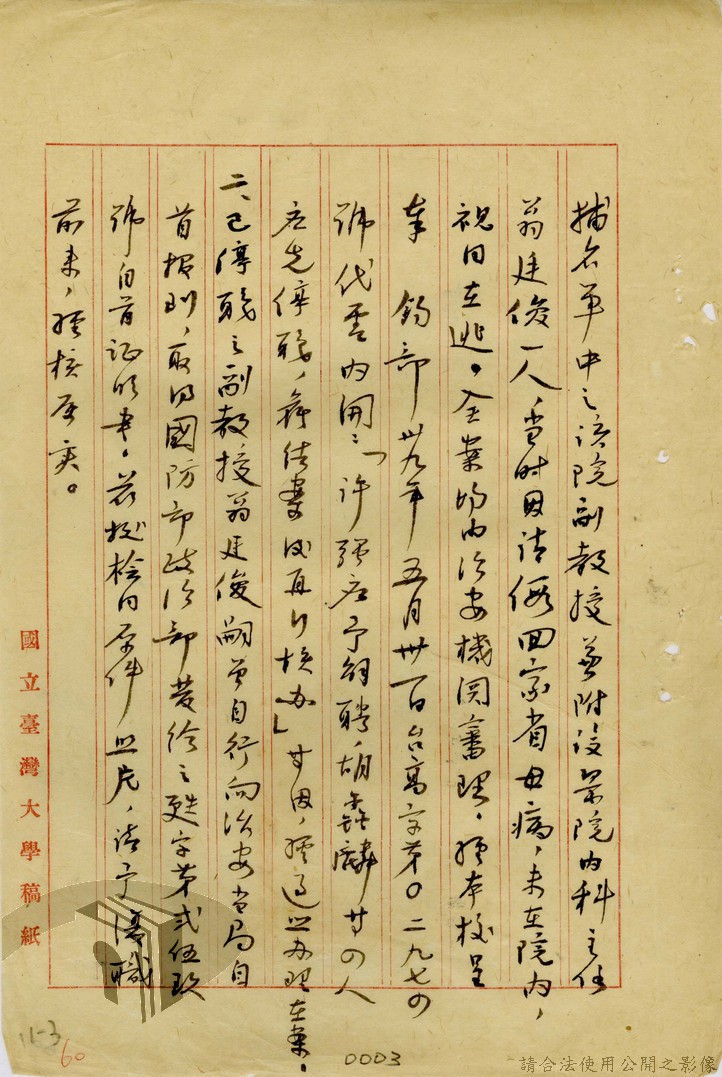 捕名單中之該院副教授兼附設第一院內科主任
翁廷俊一人，當時因請假回家省母病，未在院內，
視同在逃。全案均由治安機關審理，經本校呈
奉　鈞部卅九年五月卅一日台高字第〇二九七四
號代電內開：「許強應予解聘，胡鑫麟等四人
應先停職，荷結案後再行核辦」等因，經過照办理在案，
二、已停職之副教授翁廷俊嗣曾自行向治安當局自
首報到，取得國防部政治部發給之甦字第弍伍玖
號自首證明書。茲據檢同原件照片，請予復職
前來，經核屬實。
國立臺灣大學稿紙
11-3
60
0003
請合法使用公開之影像